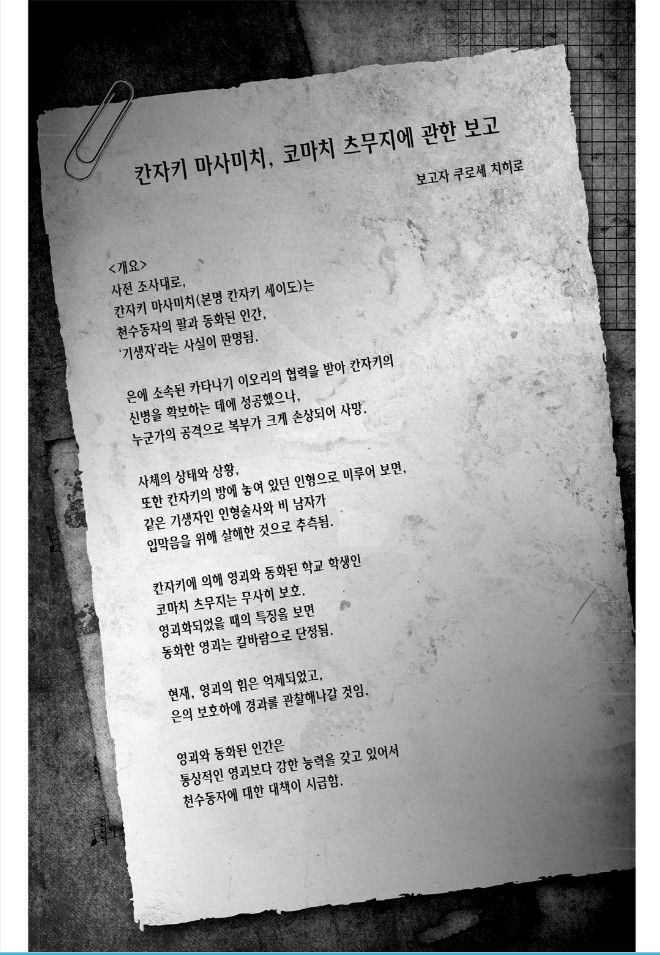 칸자키 마사미치, 코마치 츠무지에 관한 보고
보고자 쿠로세 치히로
<개요>
사전 조사대로,
칸자키 마사미치(본명 칸자키 세이도)는
천수동자의 팔과 동화된 인간,
'기생자'라는 사실이 판명됨.
은에 소속된 카타나기 이오리의 협력을 받아 칸자키의
신병을 확보하는 데에 성공했으나,
누군가의 공격으로 복부가 크게 손상되어 사망.
사체의 상태와 상황,
또한 칸자키의 방에 놓여 있던 인형으로 미루어 보면,
같은 기생자인 인형술사와 비 남자가
입막음을 위해 살해한 것으로 추측됨.
칸자키에 의해 영괴와 동화된 학교 학생인
코마치 츠무지는 무사히 보호.
영괴화되었을 때의 특징을 보면
동화한 영괴는 칼바람으로 단정됨.
현재, 영괴의 힘은 억제되었고,
은의 보호하에 경과를 관찰해나갈 것임.
영괴와 동화된 인간은
통상적인 영괴보다 강한 능력을 갖고 있어서
천수동자에 대한 대책이 시급함.